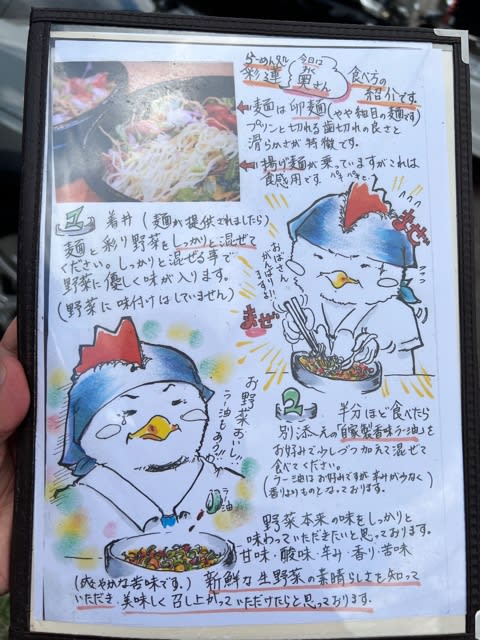 らーめん処
彩蓮
今日は
奥さん
食べ方の
紹介です。
麺は卵麺(やや細目の麺です)
プリンと切れる歯切れの良さと
滑らかさが特徴です。
揚げ麺が乗っていますがこれは
食感用です
1 着丼(麺が提供されましたら)
麺と彩り野菜をしっかりと混ぜて
ください。しっかりと混ぜる事で
野菜に優しく味が入ります。
(野菜に味付けはしていません)
おばさん
がんばりすぎ!!
まぜ
まぜ
お野菜おいし!!
ラー油もあう!!
ラー油
2 半分ほど食べたら
別添えの「自家製香味ラー油」を
お好みで少しづつ加えて混ぜて
食べてください。
(ラー油はお好みですが辛みが少なく
香りよりものとなっております。
野菜本来の味をしっかりと
味わっていただきたいと思っております。
甘味・酸味・辛み・香り・苦味
(爽やかな苦味です。) 新鮮な生野菜の素晴らしさを知って
いただき 美味しく召し上がっていただけたらと思っております。